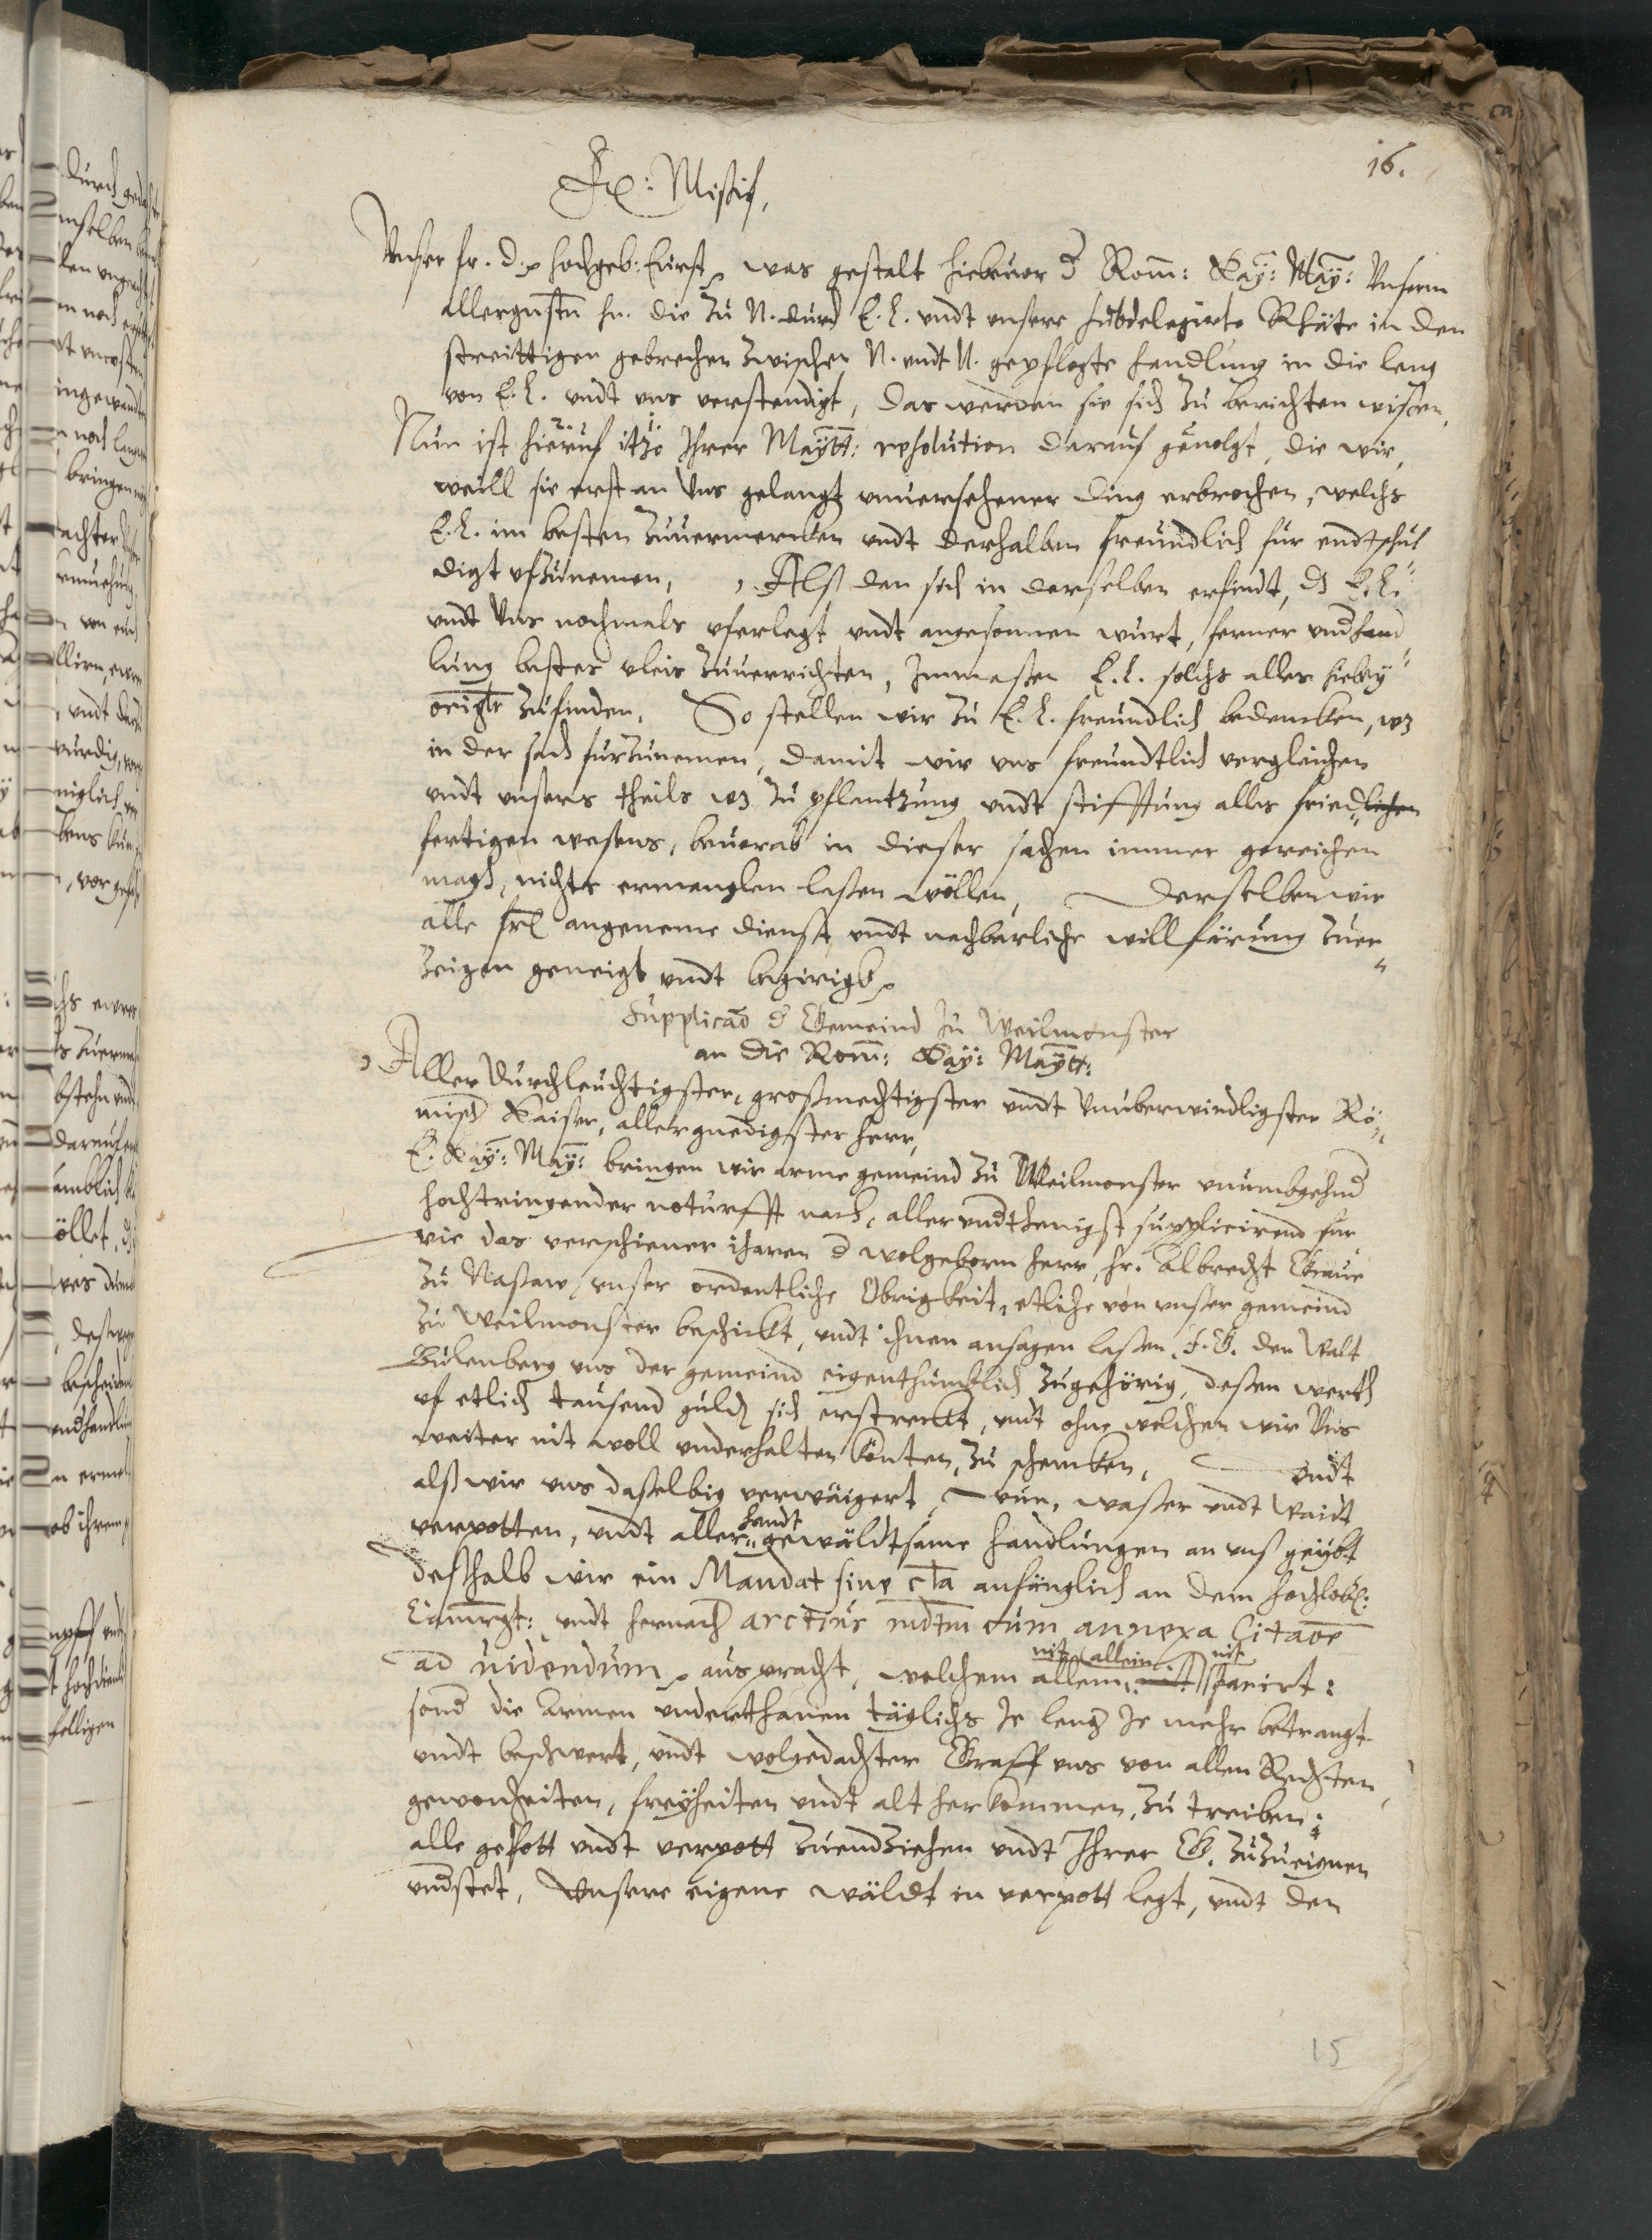 16.
Ex: Missif,
Unser fr. d. hochgeb: Fürst, was gestalt hiebeuor d Rom: Kay: May: Unserm
allergnstn hn. die zu N. durch E. L. undt unsere subdelegirte Rhäte in den
streittigen gebrechen zwischen N. undt N. gepflogte handlung in die leng
von E. L. undt uns verstendigt, das werden sie sich zu berichten wissen,
Nun ist hieruf itzo Ihrer Maytt: resolution darauf geuolgt, die wir,
weill sie erst an Uns gelangt unuersehener ding erbrochen, welchs
E. L. im besten zuuermercken undt derhalben freundlich für endtschul
digt ufzunemen, Alß dan sich in derselben erfindt, ds E. L.
undt Uns nochmals uferlegt undt angesonnen wurt, ferner undhand
lung bestes vleis zuuerrichten, Inmassen E. L. solchs alles hiebey
origlr zufinden, So stellen wir zu E. L. freundlich bedencken, wz
in der sach fürzunemen, damit wir uns freundtlich vergleichen
undt unsers theils wz zu pflantzung undt stifftung alles friedlichen
fertigen wesens, beuorab in dieser sachen immer gereichen
magh, nichts ermanglen lassen wöllen, Derselben wir
alle frl angeneme dienst undt nachbarliche willfärung zuer
zeigen geneigt undt begirigt
Supplicao d Gemeind zu Weilmonster
an die Rom: Kay: Maytt:
Aller durchleuchtigster, großmechtigster undt Unuberwindligster Rö
misch Kaiser, allergnedigster herr,
E. Kay: May: bringen wir arme gemeind zu Weilmonster unumbgehnd
hochtringender noturfft nach, aller undthenigst supplicirend für
wie das verschiener iharen d wolgeborn herr, hr. Albrecht Graue
zu Nassaw unser ordentliche Obrigkeit, etliche von unser gemeind
zu Weilmonster beschickt, undt ihnen ansagen lassen, I. G. den Walt
Eulenberg uns der gemeind eigenthumblich zugehörig, dessen werth
uf etlich tausend guldn sich erstreckt, undt ohne welchen wir Uns
weiter nit woll underhalten könten, zu schencken, undt
alß wir uns dasselbig verwäigert, wun, wasser undt waidt
verpotten, undt aller handt gewäldtsame handlungen an unß geübt
deßhalb wir ein Mandat sine cla anfänglich an dem hochlobl:
Camrgt: undt hernach arctius mdtm cum annexa Citaoe
ad uidendum, ausbracht, welchem allem, nit allein nit parirt:
sond die armen underthanen täglichs Je leng Je mehr betrangt
undt beschwert, undt wolgedachter Graff uns von allen Rechten,
gewonheiten, freyheiten undt alt herkommen, zu treiben:
alle gebott undt verpott zuendziehen undt Ihrer G. zuzueignen
undstet, Unsere eigene wäldt in verpott legt, undt den
15